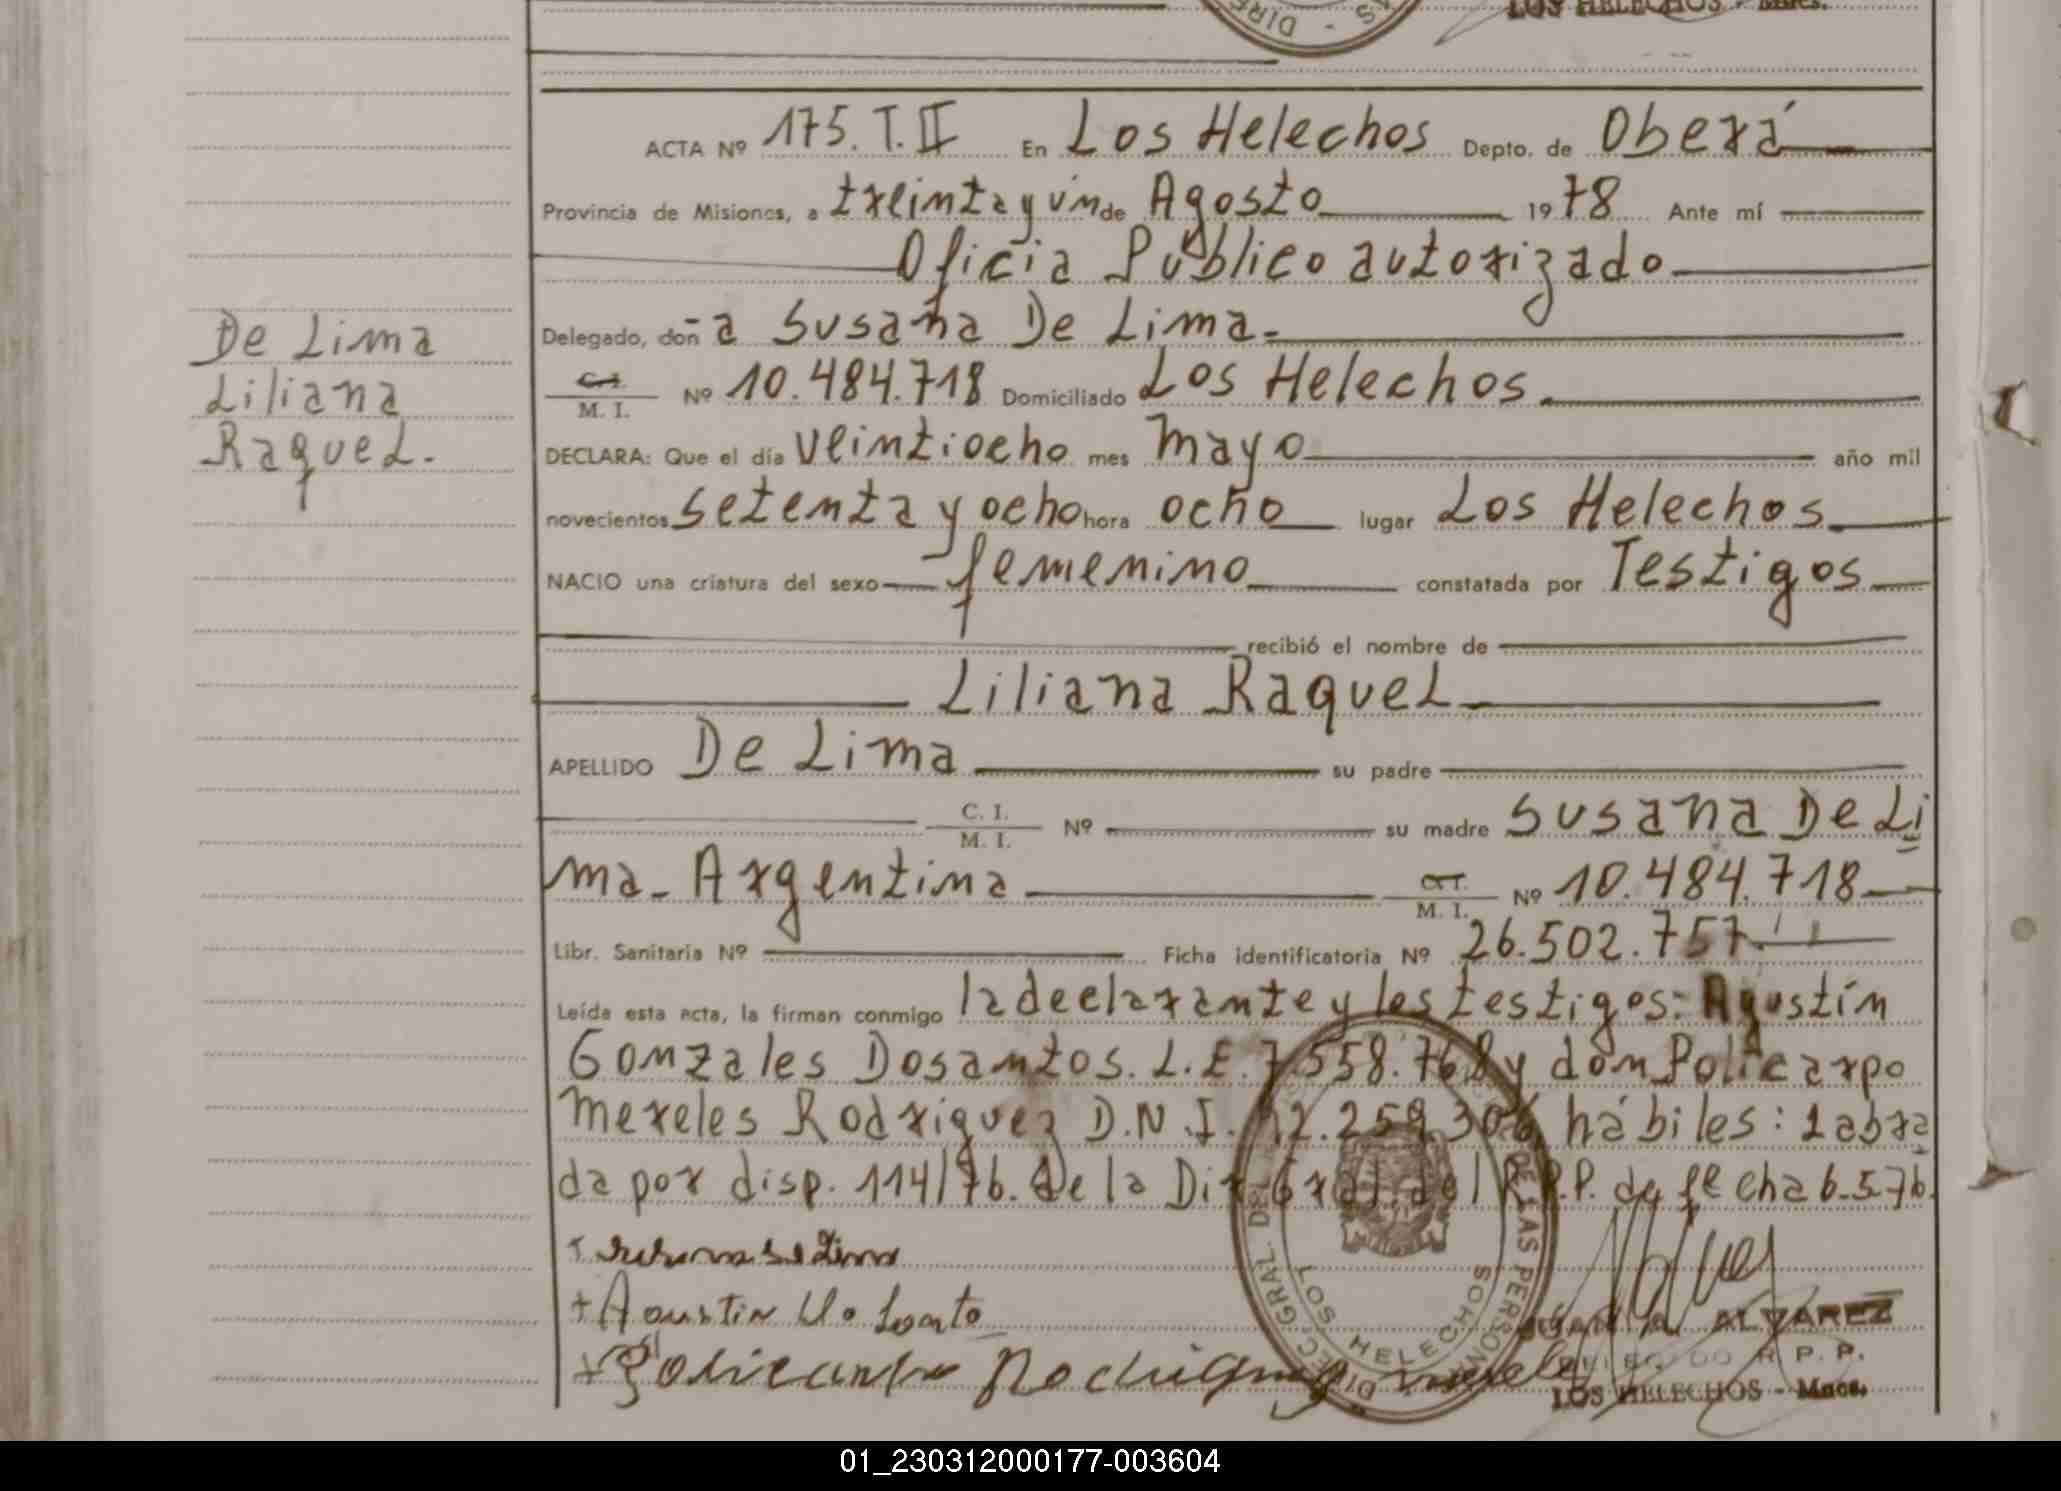 LOS HELECHOS - Mnes.
ACTA Nº 175. T. II En Los Helechos Depto. de Oberá
Provincia de Misiones, a treinta y ún de Agosto 1978 Ante mí
Oficia Público autorizado
Delegado, doña Susana De Lima.
C. I. M. I. Nº 10.484.718 Domiciliado Los Helechos
De Lima
Liliana
Raquel.
DECLARA: Que el día veintiocho mes mayo año mil
novecientos setenta y ocho hora ocho lugar Los Helechos
NACIO una criatura del sexo femenino constatada por Testigos
recibió el nombre de
Liliana Raquel
APELLIDO De Lima su padre
C. I. M. I. Nº su madre Susana De Li
ma - Argentina M. I. Nº 10.484.718
Libr. Sanitaria Nº Ficha identificatoria Nº 26.502.757
Leída esta acta, la firman conmigo la declarante y los testigos: Agustín
Gonzales Dosantos. L.E. 7.558.768 y don Policarpo
Mereles Rodriguez D.N.I. 12.259.306 hábiles: Labra
da por disp. 114/76. de la Dir. Gral. del R.P.P. de fecha 6.5.76.
Agustin
Rodrigue
DIREC. GRAL. DE LAS PERSONAS
LOS HELECHOS
ALVAREZ
R. P. P.
LOS HELECHOS - Mnes.
01_230312000177-003604